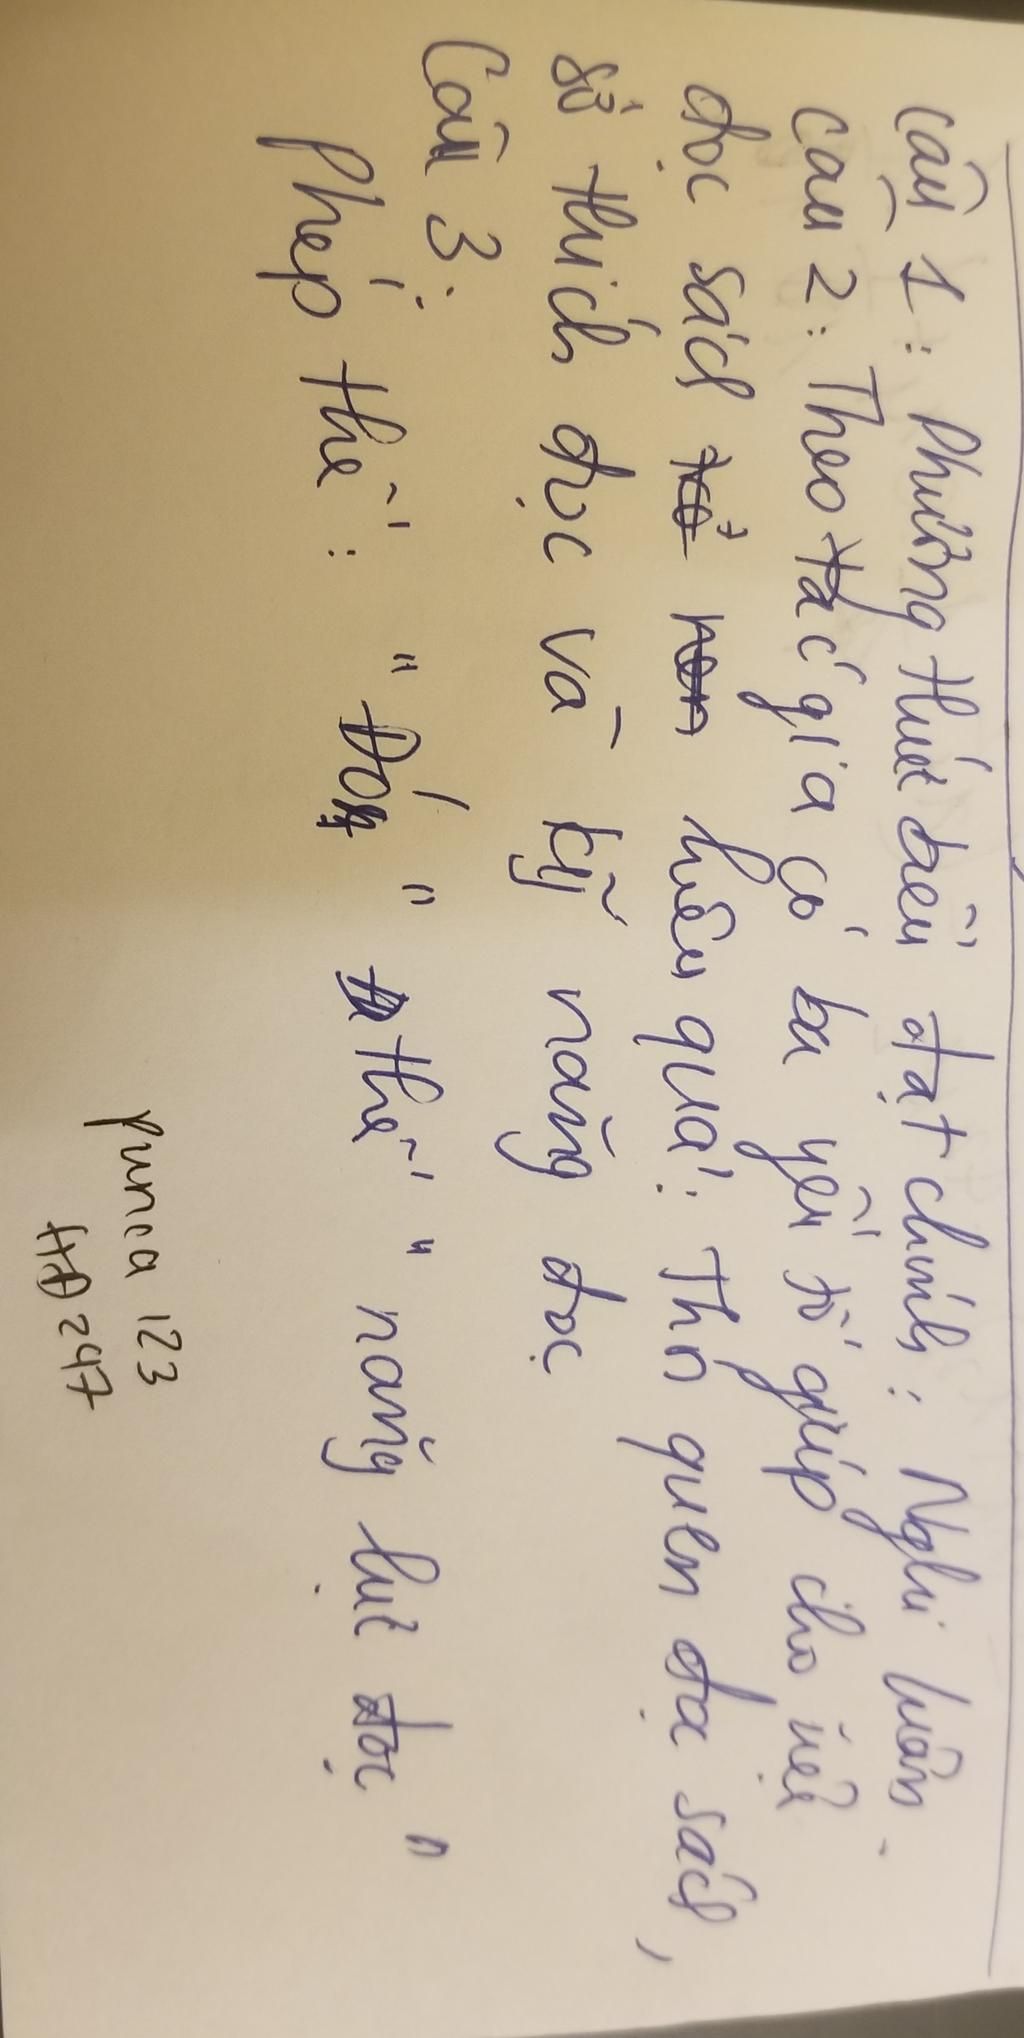 Câu 1: Phương thức biểu đạt chính: Nghị luận.
Câu 2: Theo tác giả có ba yếu tố giúp cho việc
đọc sách hiệu quả: Thói quen đọc sách,
sở thích đọc và kỹ năng đọc
Câu 3:
Phép thế: "Đó" thế "năng lực đọc"
purica 123
HĐ 247